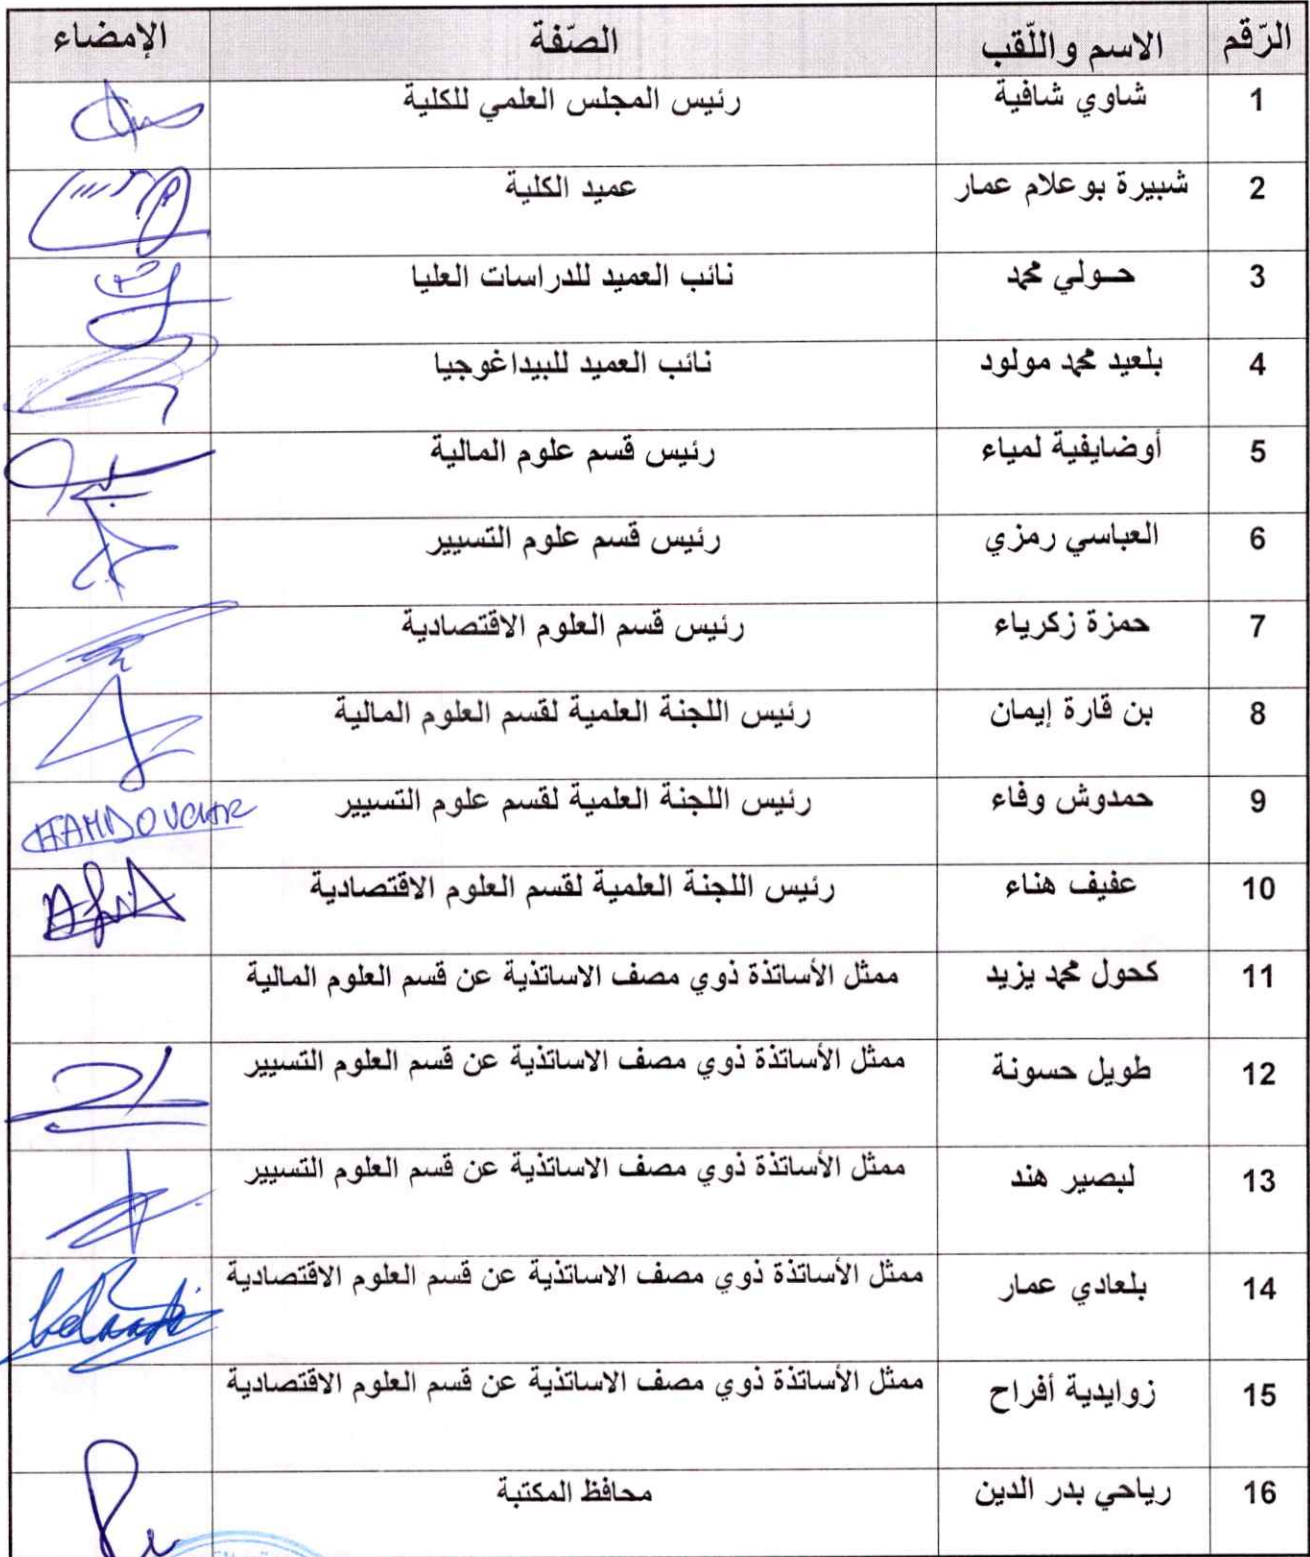 الرّقم الاسم واللّقب الصّفة الإمضاء
1 شاوي شافية رئيس المجلس العلمي للكلية
2 شبيرة بوعلام عمار عميد الكلية
3 حولي محمد نائب العميد للدراسات العليا
4 بلعيد محمد مولود نائب العميد للبيداغوجيا
5 أوضايفية لمياء رئيس قسم علوم المالية
6 العباسي رمزي رئيس قسم علوم التسيير
7 حمزة زكرياء رئيس قسم العلوم الاقتصادية
8 بن قارة إيمان رئيس اللجنة العلمية لقسم العلوم المالية
9 حمدوش وفاء رئيس اللجنة العلمية لقسم علوم التسيير HAMDOUCHE
10 عفيف هناء رئيس اللجنة العلمية لقسم العلوم الاقتصادية Afif
11 كحول محمد يزيد ممثل الأساتذة ذوي مصف الاساتذية عن قسم العلوم المالية
12 طويل حسونة ممثل الأساتذة ذوي مصف الاساتذية عن قسم العلوم التسيير
13 لبصير هند ممثل الأساتذة ذوي مصف الاساتذية عن قسم العلوم التسيير
14 بلعادي عمار ممثل الأساتذة ذوي مصف الاساتذية عن قسم العلوم الاقتصادية
15 زوايدية أفراح ممثل الأساتذة ذوي مصف الاساتذية عن قسم العلوم الاقتصادية
16 رياحي بدر الدين محافظ المكتبة